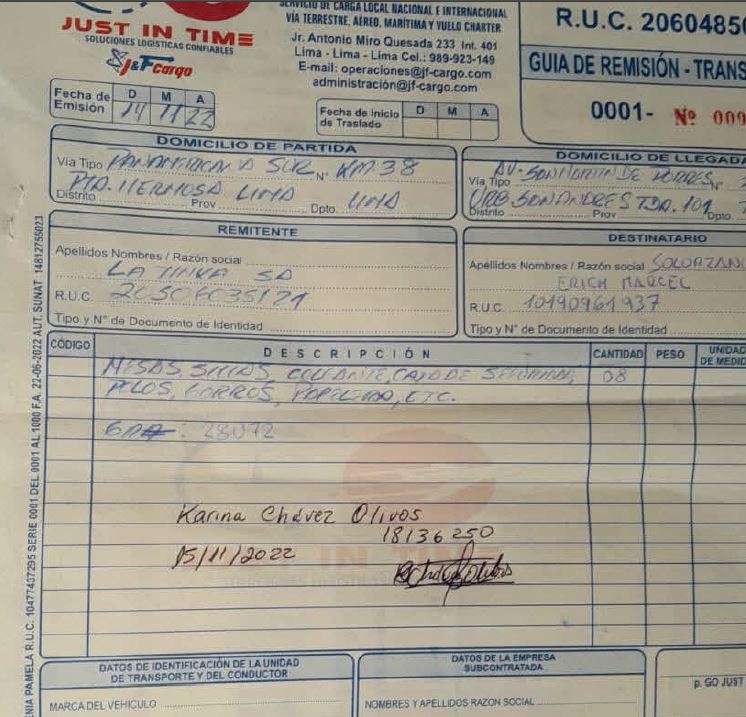 JUST IN TIME
SOLUCIONES LOGÍSTICAS CONFIABLES
J&F cargo
SERVICIO DE CARGA LOCAL NACIONAL E INTERNACIONAL
VÍA TERRESTRE, AÉREO, MARÍTIMA Y VUELO CHARTER
Jr. Antonio Miro Quesada 233 Int. 401
Lima - Lima - Lima Cel.: 989-923-149
E-mail: operaciones@jf-cargo.com
administración@jf-cargo.com
R.U.C. 2060485
GUIA DE REMISIÓN - TRANS
0001- Nº 000
Fecha de Emisión D M A
14 11 22
Fecha de Inicio de Traslado D M A
DOMICILIO DE PARTIDA
Vía Tipo PANAMERICANA SUR N° KM 38
PTA. HERMOSA LIMA
Distrito Prov Dpto. LIMA
DOMICILIO DE LLEGADA
AV. SAN MARTIN DE PORRES
Vía Tipo N°
URB. SAN ANDRES TDA. 101
Distrito Prov Dpto.
REMITENTE
Apellidos Nombres / Razón social
LA TINKA SA
R.U.C. 20506035121
Tipo y N° de Documento de Identidad
DESTINATARIO
Apellidos Nombres / Razón social SOLORZANO
ERICH MARCEL
R.U.C. 10190961937
Tipo y N° de Documento de Identidad
CÓDIGO DESCRIPCIÓN CANTIDAD PESO UNIDAD DE MEDID
MESAS, SILLAS, CAJA DE SEGURIDAD, 08
ETC.
28072
Karina Chávez Olivos
18136250
15/11/2022
IN TIME
DATOS DE IDENTIFICACIÓN DE LA UNIDAD DE TRANSPORTE Y DEL CONDUCTOR
MARCA DEL VEHICULO
DATOS DE LA EMPRESA SUBCONTRATADA
NOMBRES Y APELLIDOS RAZON SOCIAL
p. GO JUST
NIA PAMELA R.U.C. 10477437295 SERIE 0001 DEL 0001 AL 1000 F.A. 22-06-2022 AUT. SUNAT. 14812755023